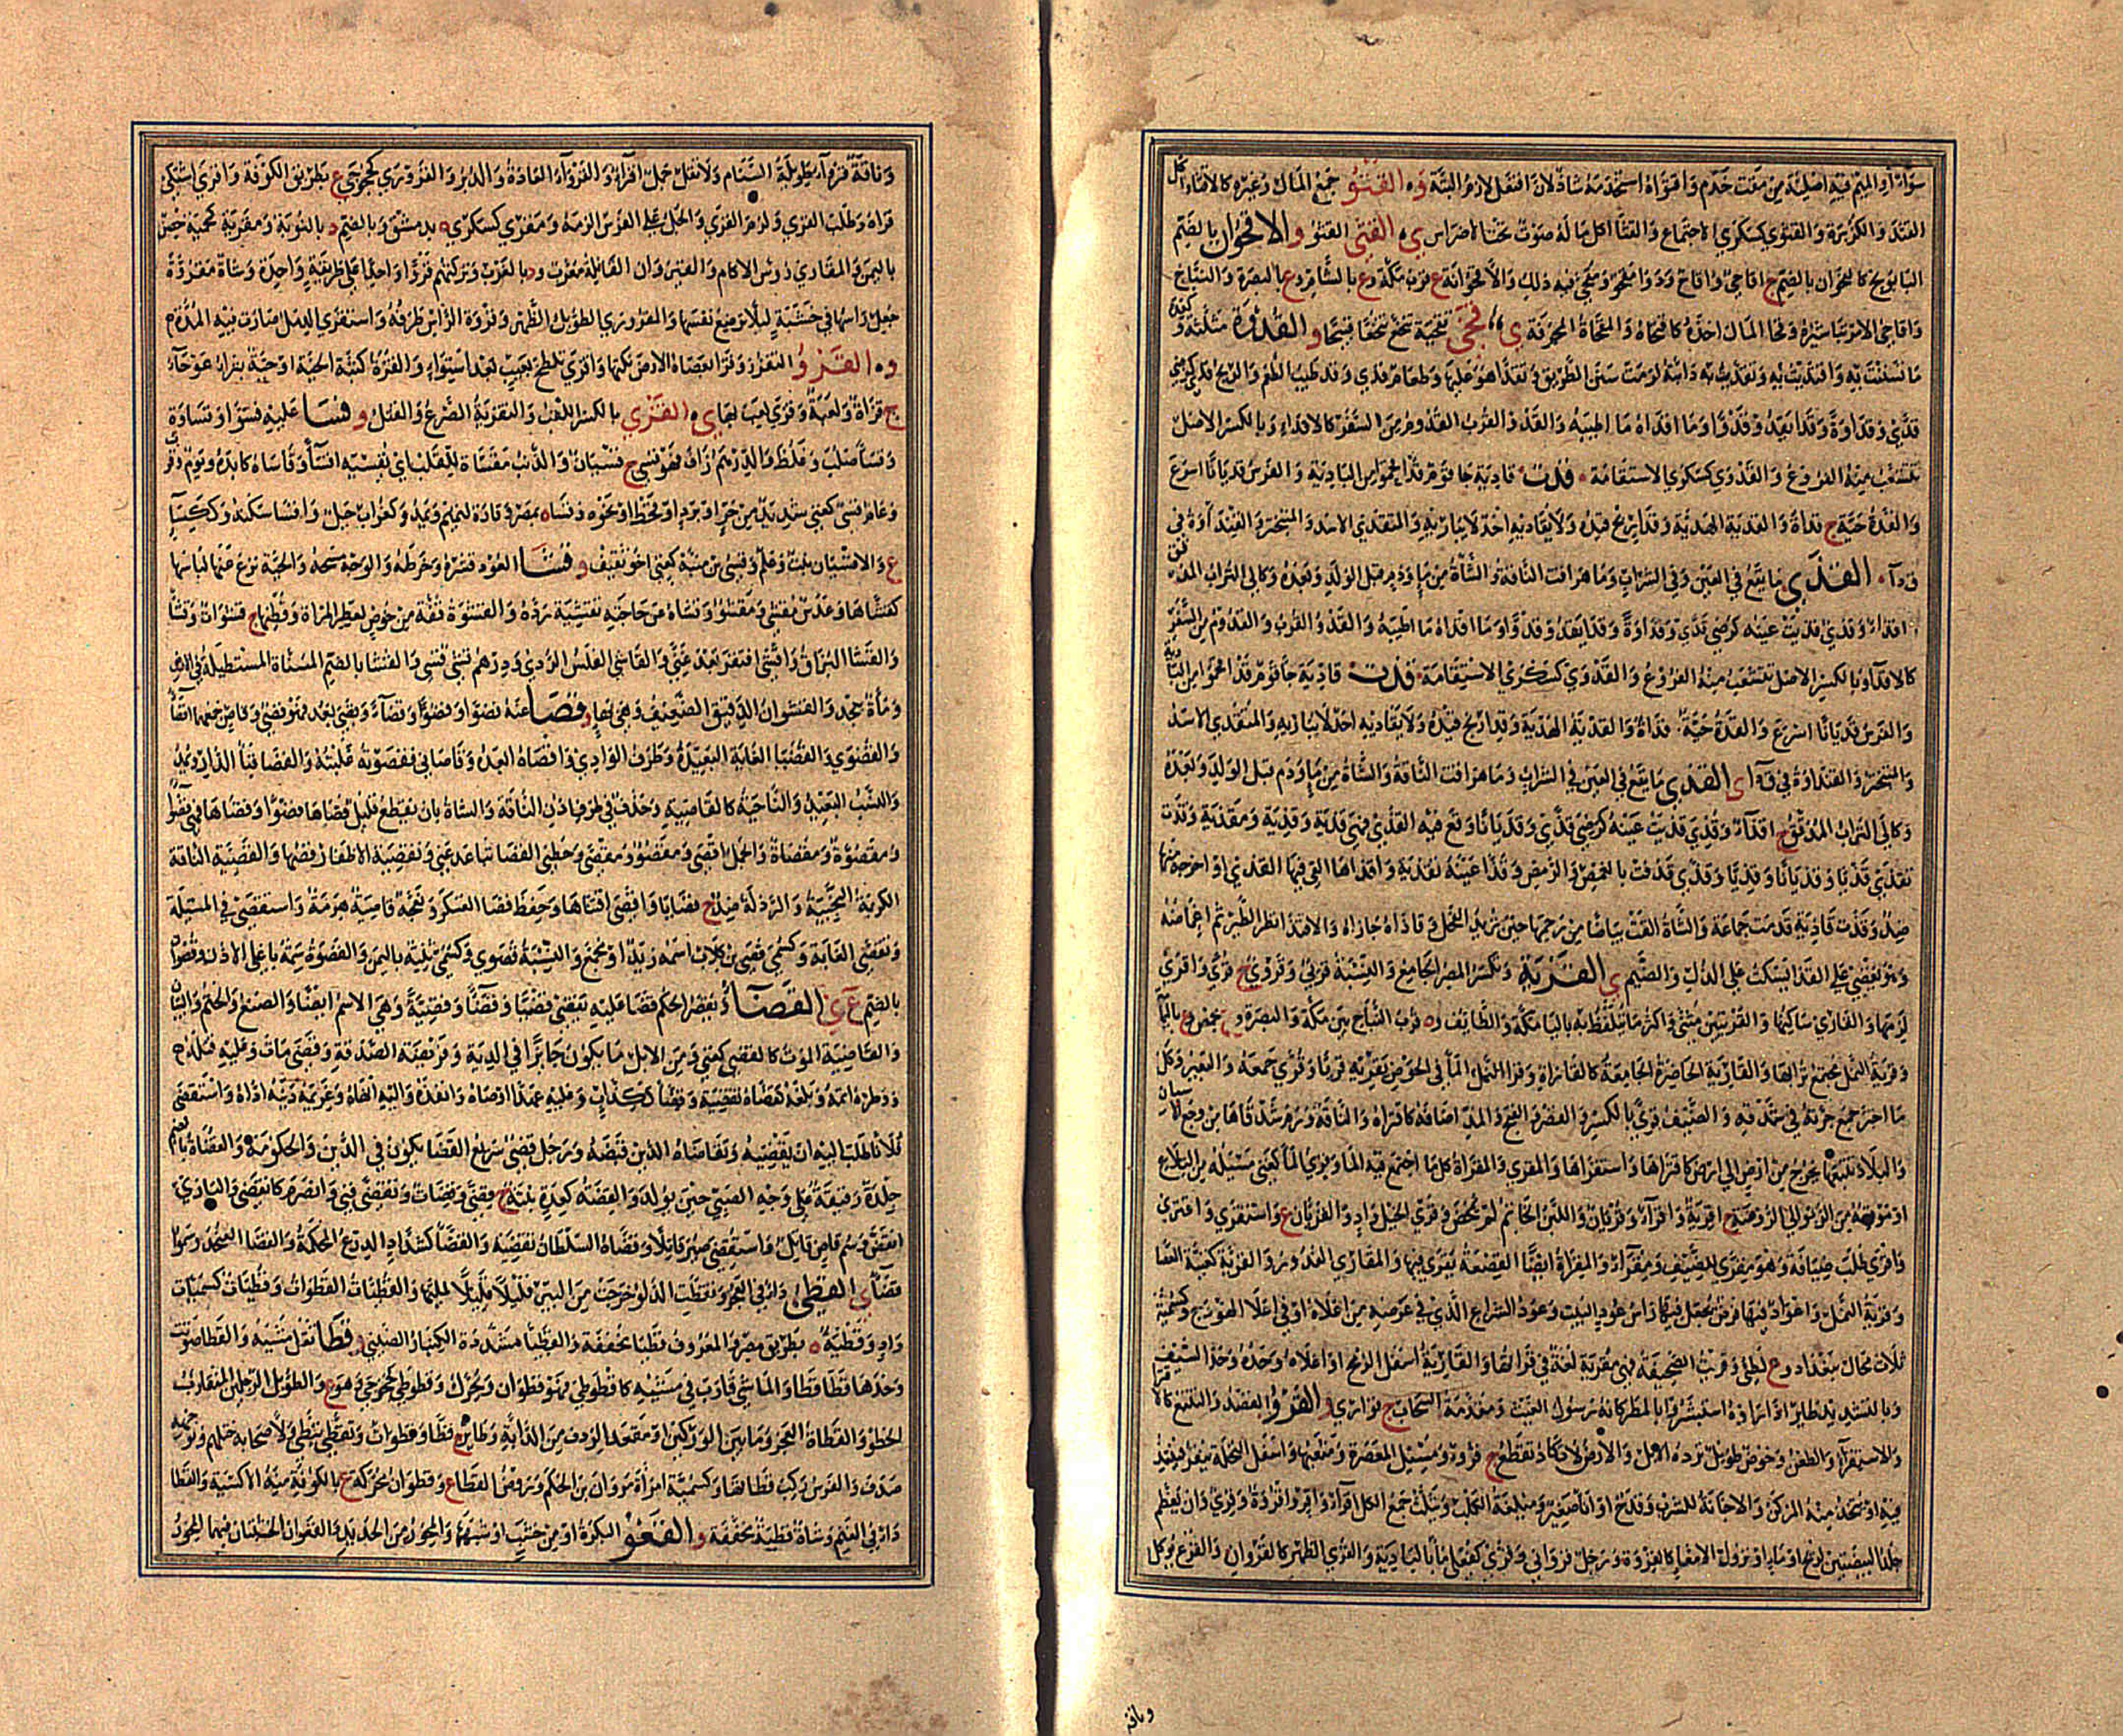 سواء او الميم فيه اصلية من مقت خدم واقتواه استخدمه شاذ لان افتعل لازم البتة وه القثو جمع المال وغيره كالاقتثاء واكل
القثد والكربرة والقثوى كسكرى الاجتماع والقثا اكل ما له صوت تحت الاضراس ي القثى القثو و الاقحوان بالضم
البابونج كالقحوان بالضم ج اقاحي واقاح ودواء مقحو ومقحى فيه ذلك والاقحوانة ع قرب مكة وع بالشام وع بالبصرة والنباج
واقاحى الامر تباشيره وقحا المال اخذه كاقتحاه والمقحاة المجرفة ي قخى تقخية تنخع تنخعا قبيحا و القدوة مثلثة وكعدة
ما تسننت به واقتديت به وتقدت به دابته لزمت سنن الطريق وتقدى هو عليها وطعام قدى وقد طيب الطعم والريح قدى كرضي
قدى وقداوة وقدا يقدو قدوا وما اقداه ما اطيبه والقدو القرب والقدوم من السفر كالاقداء وبالكسر الاصل
تتشعب منه الفروع والقدوى كسكرى الاستقامة قدت قادية جا قوم قد اقحموا من البادية والفرس قديانا اسرع
والقدة حية ج قداة والقدية الهدية وقدا رمح قيده ولا يقاديه احد لا يباريه والمتقدي الاسد والمتبختر والقندأوة في
ق د أ القذى ما يقع في العين وفي الشراب وما هراقت الناقة والشاة من ماء ودم قبل الولد وبعده وكالى التراب المدقق
اقذاء وقذي قذيت عينه كرضي
كالاقداء وبالكسر الاصل تتشعب منه الفروع والقدوى كسكرى الاستقامة قدت قادية جا قوم قد اقحموا من البادية
والفرس قديانا اسرع والقدة حية قداة والقدية الهدية وقدا رمح قيده ولا يقاديه احد لا يباريه والمتقدي الاسد
والمتبختر والقنداوة في ق د أ ى القذى ما يقع في العين في الشراب وما هراقت الناقة والشاة من ماء ودم قبل الولد وبعده
وكالى التراب المدقق ج اقذاء وقذي قذيت عينه كرضي قذى وقذيانا وقع فيه القذى فهي قذية وقذية ومقذية وقذت
تقذي قذيا وقذيانا وقذيا وقذى قذفت بالغمص والرمص وقذا عينه تقذية واقذاها القى فيها القذى او اخرجه منها
ضد وقذت قاذية قدمت جماعة والشاة القت بياضا من رحمها حين تريد الفحل وقاذاه جازاه والاقتذا نظر الطير ثم اغماضه
وهو يغضي على القذا يسكت على الذل والضيم ي القرية وتكسر المصر الجامع والنسبة قرئي وقروي ج قرى واقرى
لزمها والقاري ساكنها والقريتين مثنى واكثر ما يتلفظ به باليا مكة والطائف وه قرب النباج بين مكة والبصرة و بحمص وع باليمامة
وقرية النمل مجتمع ترابها والقارية الحاضرة الجامعة كالقاراة وقرا الماء في الحوض يقريه قريا وقرى جمعه والبعير وكل
ما اجتر جمع جرته في شدقه والضيف قرى بالكسر والقصر والفتح والمد اضافه كاقتراه والناقة ورم شدقاها من وجع الاسنان
والبلاد تتبعها يخرج من ارض الى ارض كاقتراها واستقراها والمقرى والمقراة كل ما اجتمع فيه الماء وقرى الماء كغني مسيله من التلاع
او موقعه من الربو الى الروضة ج اقرية واقراء وقريان واللبن الخاثر لم يمخض وقرى الخيل واد والقريان ع واستقرى واقترى
واقرى طلب ضيافة وهو مقرى للضيف ومقراء والمقراة ايضا القصعة يقرى فيها والمقاري القدور والقرية كغنية العصا
وقرية النمل واعواد فيها فرض يجعل فيها راس عمود البيت وعود الشراع الذي في عرضه من اعلاه او في اعلا الهودج وكسمية
ثلاث محال ببغداد وع لطيئ وقريت الصحيفة فهي مقرية لغة في قراتها والقارية اسفل الرمح او اعلاه وحده وحد السيف
وبالتشديد طاير اذا راوه استبشروا بالمطر كانه رسول الغيث ومقدمة السحاب ج قواري و القرو القصد والتتبع كالا
والاستقراء والطعن وحوض طويل ترده الابل والارض لا تكاد تقطع ج قرو ومسيل المعصرة ومثعبها واسفل النخلة ينقر فينبذ
فيه او يتخذ منه المركن والاجانة للشرب وقدح او اناء صغير وميلغة الكلب ويثلث جمع الكل اقراء واقر واقروة وقرى وان يعظم
جلد البيضتين لريح او ماء او نزول الامعاء كالقروة ورجل قرواني وقرى كفعلى ماء بالبادية والقرى الظهر كالقروان والقرع يوكل
وناقة
وناقة قرواء طويلة السنام ولا تقل جمل اقرا والقرواء العادة والدبر والقرورى كخجوجى ع بطريق الكوفة واقرى اشتكى
قراه وطلب القرى ولزم القرى والجل على الفرس الزمه ومقرى كسكرى ه بدمشق وبالضم د بالنوبة ومقرية كمحمية حصن
باليمن والمقاري رؤس الاكام والقيروان القافلة معرب ود بالمغرب وتركتهم قروا واحدا على طريقة واحدة وشاة مقروة
جعل راسها في خشبة ليلا ترضع نفسها والقرورى الطويل الظهر وقروة الراس طرفه واستقرى الدمل صارت فيه المدة م
وه القزو التقزز وقزا بعصاه الارض نكتها واقزى تلطخ بعيب بعد استواء والقزة كثبة الحية او حية بتراء عوجاء
ج قزاة ولعبة وقزى لعب بها ي القزي بالكسر اللقب والتقزية الصرع والقتل و قسا عليه قسوا وقساوة
وقساء صلب وغلظ والدرهم زاف فهو قسي ج قسيان والذنب مقساة للقلب اي يقسيه اقساء وقاساه كابده ويوم وقرب
وعام قسي كغني شديد من حر او برد او قحط او نحوه وقساه بمصر وقارة لتميم ويمد وكغراب جبل واقسا سكنه وككساء
ع والاقسيان نبت وعلم وقسي بن منبه كغني اخو ثقيف و قشا العود قشره وخرطه والوجه سحه والحية نزع عنها لباسها
كقشاها وعدس مقشى ومقشو وقشاه عن حاجته تقشية رده والقشوة قفة من خوص لعطر المراة وقطنها ج قشوات وقشاء
والقشا البزاق واقشى افتقر بعد غنى والقاشي الفلس الردي ودرهم قشي قسي والقشا بالضم المسناة المستطيلة في الارض
وماءة بنجد والقشوان الدقيق الضعيف وهي بهاء و قصا عنه قصوا وقصوا وقصاء وقصي بعد فهو قصي وقاص جمعهما اقصاء
والقصوى والقصيا الغاية البعيدة وطرف الوادي واقصاه ابعده وقاصاني فقصوته غلبته والقصا فناء الدار ويمد
والنسب البعيد والناحية كالقاصية وحذف في طرف اذن الناقة والشاة بان يقطع قليل قصاها قصوا وقصاها فهي قصواء
ومقصوة ومقصاة والجمل اقصى ومقصو ومقصى وحطني القصا تباعد عني وتقصية الاظفار قصها والقصية الناقة
الكريمة النجيبة والرذلة ضد ج قصايا واقصى اقتناها وحفظ قصا العسكر ونعجة قاصية هرمة واستقصى في المسئلة
وتقصى الغاية وكسمي قصي بن كلاب اسمه زيد او مجمع والنسبة قصوي وكسمي ثنية باليمن والقصوة سمة باعلى الاذن وقصوان
بالضم ع ي القضاء ويقصر الحكم قضا عليه يقضي قضيا وقضاء وقضية وهي الاسم ايضا والصنع والحتم والبيان
والقاضية الموت كالقضي كغني ومن الابل ما يكون جائزا في الدية وفريضة الصدقة وقضى مات وعليه قتله
ووطره اتمه وبلغه كقضاه تقضية وقضاء ككذاب وعليه عهدا اوصاه وانفذه واليه انهاه وغريمه دينه اداه واستقضى
فلانا طلب اليه ان يقضيه وتقاضاه الدين قبضه ورجل قضي سريع القضا يكون في الدين والحكومة والقضاة بالضم
جلدة رقيقة على وجه الصبي حين يولد والقضة كعدة نبتة ج قضى وقضات وتقضى فني وانصرم كانقضى والبازي
انقض وسم قاض قاتل واستقضي صير قاضيا وقضاه السلطان تقضية والقضاء كشداد الدرع المحكمة والقضا العنجد وسموا
قضاء ي القطي داء في العجز وتقطت الدلو خرجت من البئر قليلا قليلا لملئها والقطيات القطوات وقطيات كسميات
واد وقطية ه بطريق مصر والمعروف قطيا مخففة والقطيا مشددة الكنبار الصيني و قطا ثقل مشيه والقطا صوتت
وحدها قطا قطا والماشي قارب في مشيه كاقطوطى فهو قطوان ويحرك وقطوطى كخجوجى وهو ع والطويل الرجلين المتقارب
الخطو والقطاة العجز وما بين الوركين او مقعد الردف من الدابة وطاير ج قطا وقطوات وتقطى تنطى ولاصحابه ختلهم وتوجهه
صدف والفرس ركب قطاتها وكسمية امراة مروان بن الحكم وروض القطا ع وقطوان محركة ع بالكوفة منه الاكسية والقطا
داء في الغنم وشاة قطية مخففة و القعو البكرة او من خشب او شبهها والمحور من الحديد والقعوان الخشبتان فيهما المحور